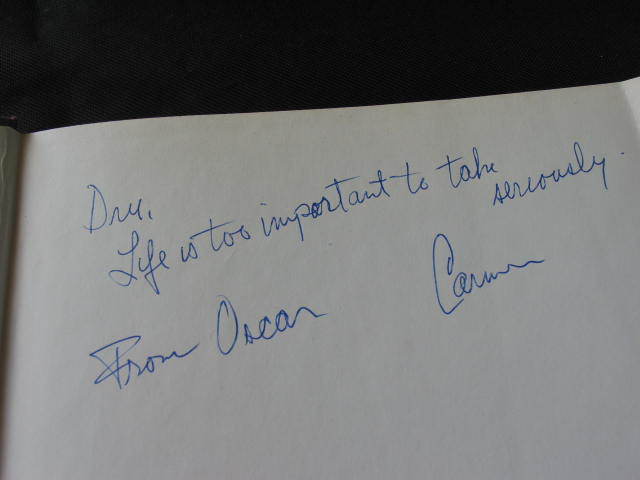 Dru,
Life is too important to take
seriously.
Carmen
From Oscar